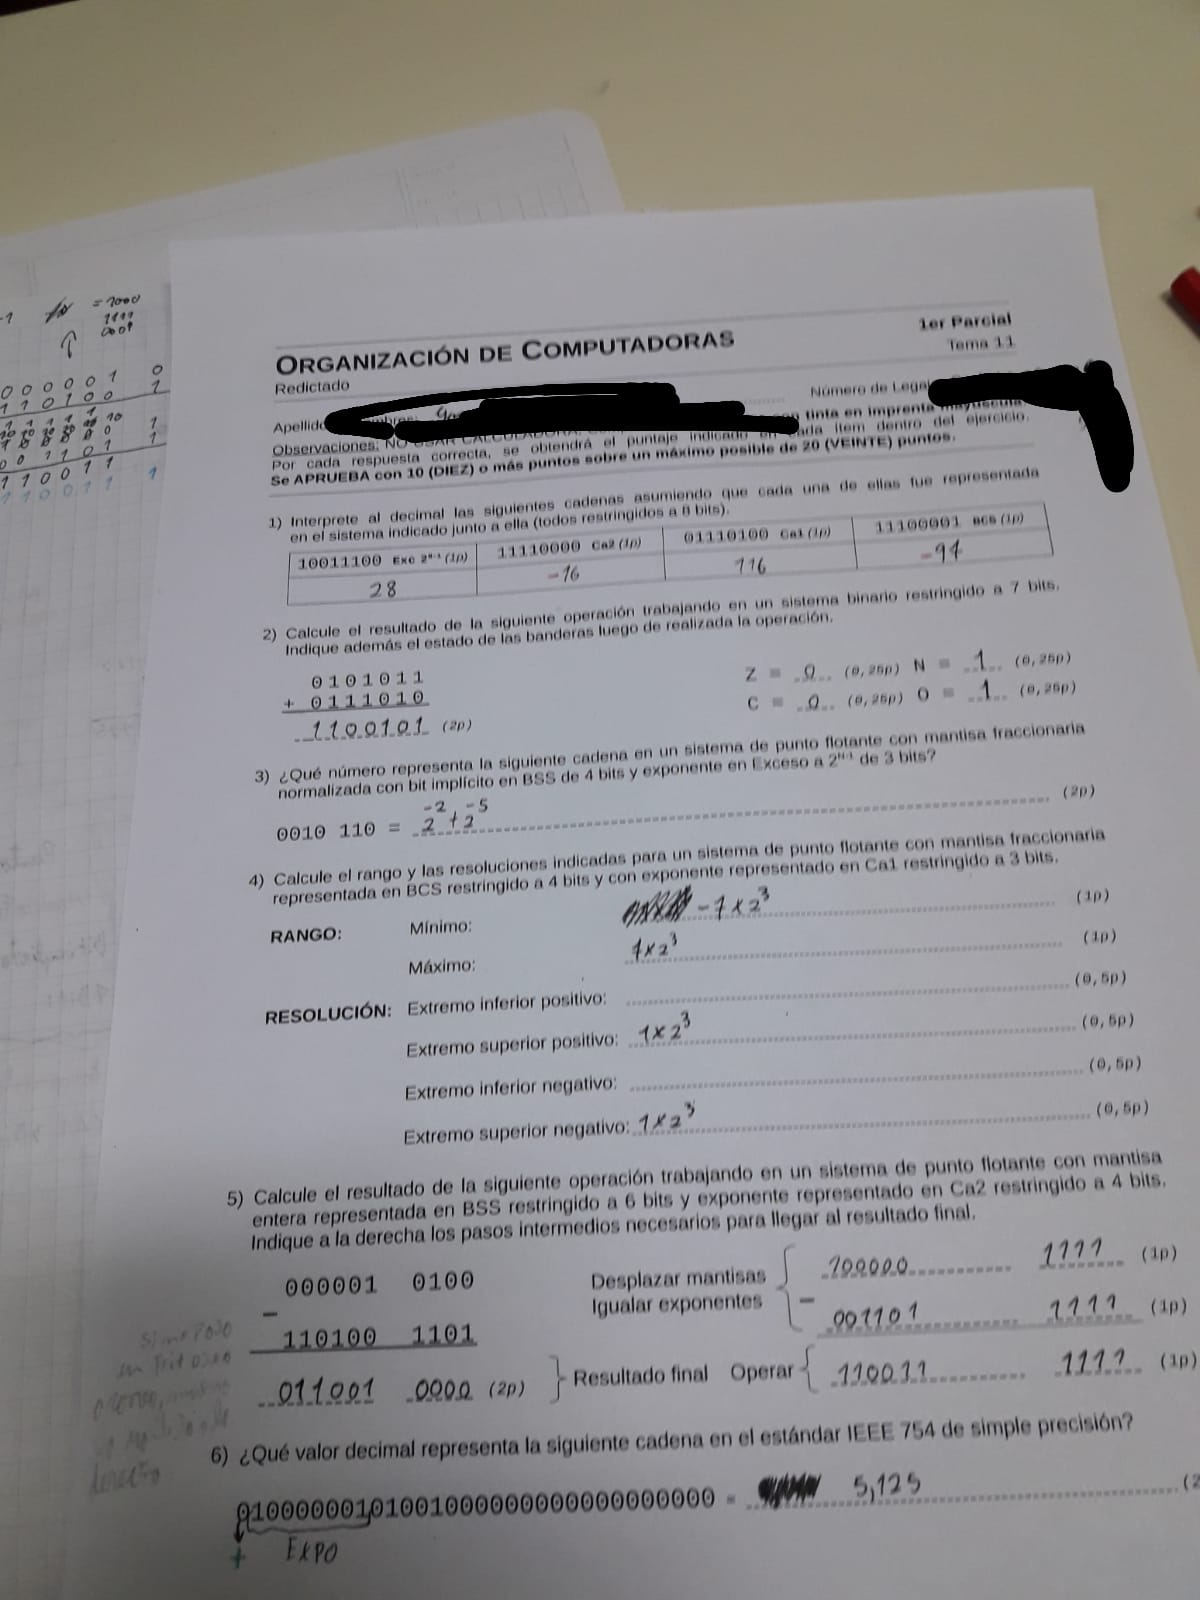 -1 = 1000
1111
0001
0 0 0 0 0 0 1 0
1 1 0 1 0 0 1
1 1 0 0 1 1
1 1 0 0 1 1 1
1er Parcial
ORGANIZACIÓN DE COMPUTADORAS
Tema 11
Redictado
Número de Legaj
Apellido
Observaciones: NO USAR CALCULADORA. con tinta en imprenta mayúscula
Por cada respuesta correcta, se obtendrá el puntaje indicado en cada ítem dentro del ejercicio.
Se APRUEBA con 10 (DIEZ) o más puntos sobre un máximo posible de 20 (VEINTE) puntos.
1) Interprete al decimal las siguientes cadenas asumiendo que cada una de ellas fue representada
en el sistema indicado junto a ella (todos restringidos a 8 bits).
10011100 Exc 2ᴺ⁻¹ (1p) 11110000 Ca2 (1p) 01110100 Ca1 (1p) 11100001 BCS (1p)
28 -16 116 -97
2) Calcule el resultado de la siguiente operación trabajando en un sistema binario restringido a 7 bits.
Indique además el estado de las banderas luego de realizada la operación.
0101011 Z = 0 (0,25p) N = 1 (0,25p)
+ 0111010 C = 0 (0,25p) O = 1 (0,25p)
1100101 (2p)
3) ¿Qué número representa la siguiente cadena en un sistema de punto flotante con mantisa fraccionaria
normalizada con bit implícito en BSS de 4 bits y exponente en Exceso a 2ᴺ⁻¹ de 3 bits?
0010 110 = 2⁻² + 2⁻⁵ (2p)
4) Calcule el rango y las resoluciones indicadas para un sistema de punto flotante con mantisa fraccionaria
representada en BCS restringido a 4 bits y con exponente representado en Ca1 restringido a 3 bits.
RANGO: Mínimo: -7 x 2³ (1p)
Máximo: 7x2³ (1p)
RESOLUCIÓN: Extremo inferior positivo: (0,5p)
Extremo superior positivo: 1x2³ (0,5p)
Extremo inferior negativo: (0,5p)
Extremo superior negativo: 1x2³ (0,5p)
5) Calcule el resultado de la siguiente operación trabajando en un sistema de punto flotante con mantisa
entera representada en BSS restringido a 6 bits y exponente representado en Ca2 restringido a 4 bits.
Indique a la derecha los pasos intermedios necesarios para llegar al resultado final.
000001 0100 Desplazar mantisas 100000 1111 (1p)
- Igualar exponentes -
110100 1101 001101 1111 (1p)
011001 0000 (2p) } Resultado final Operar { 110011 1111 (1p)
6) ¿Qué valor decimal representa la siguiente cadena en el estándar IEEE 754 de simple precisión?
01000000101001000000000000000000 = 5,125 (2
+ EXPO